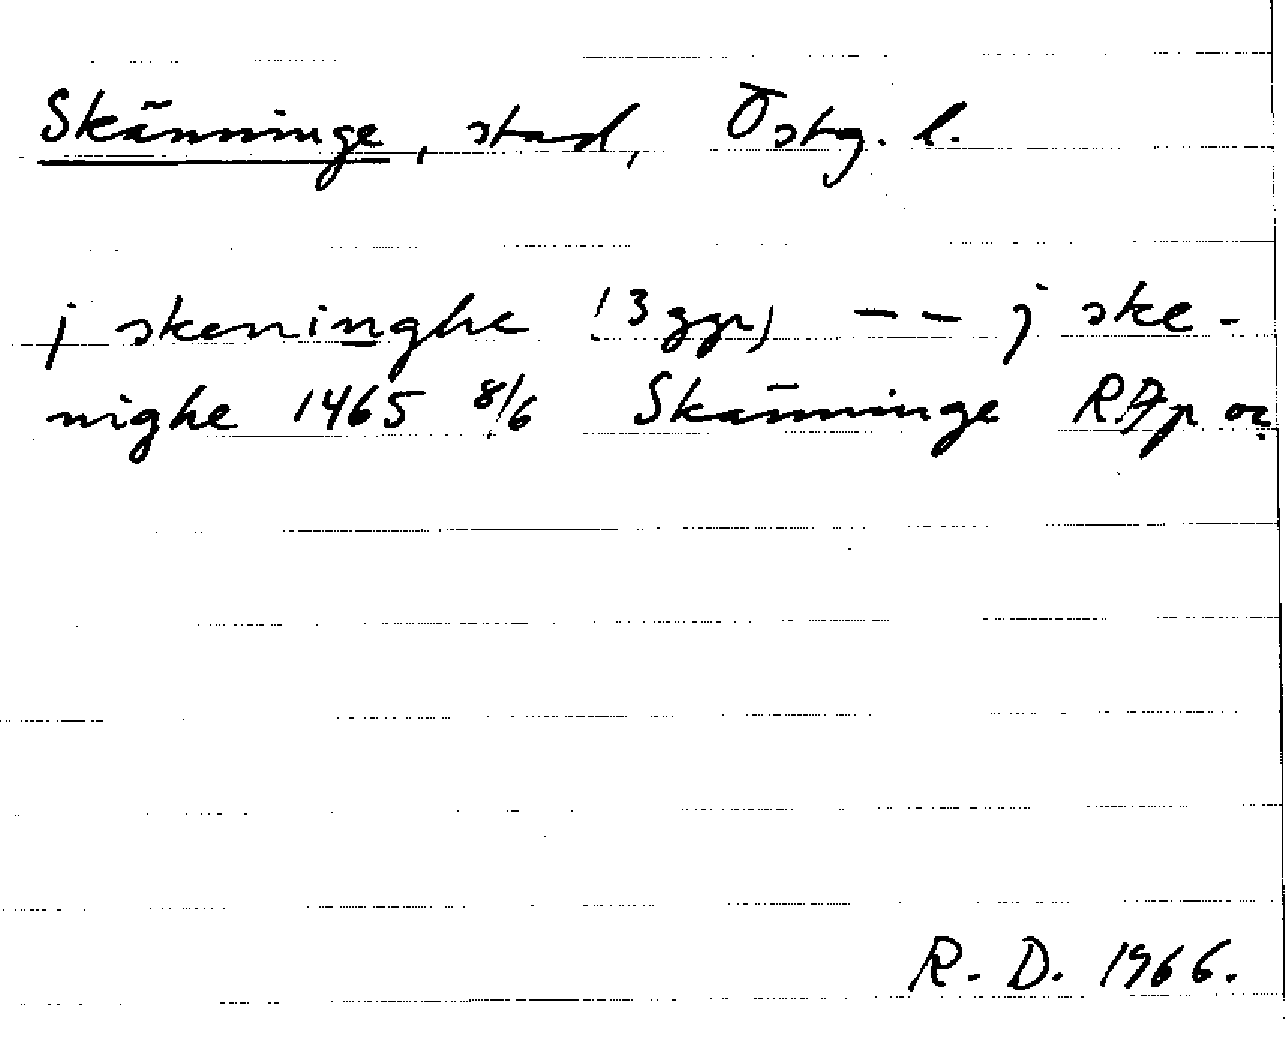 Skänninge, stad, Östg. l.
j skeninghe (3 ggr) -- j ske-
nighe 1465 8/6 Skänninge RAp or
R. D. 1966.